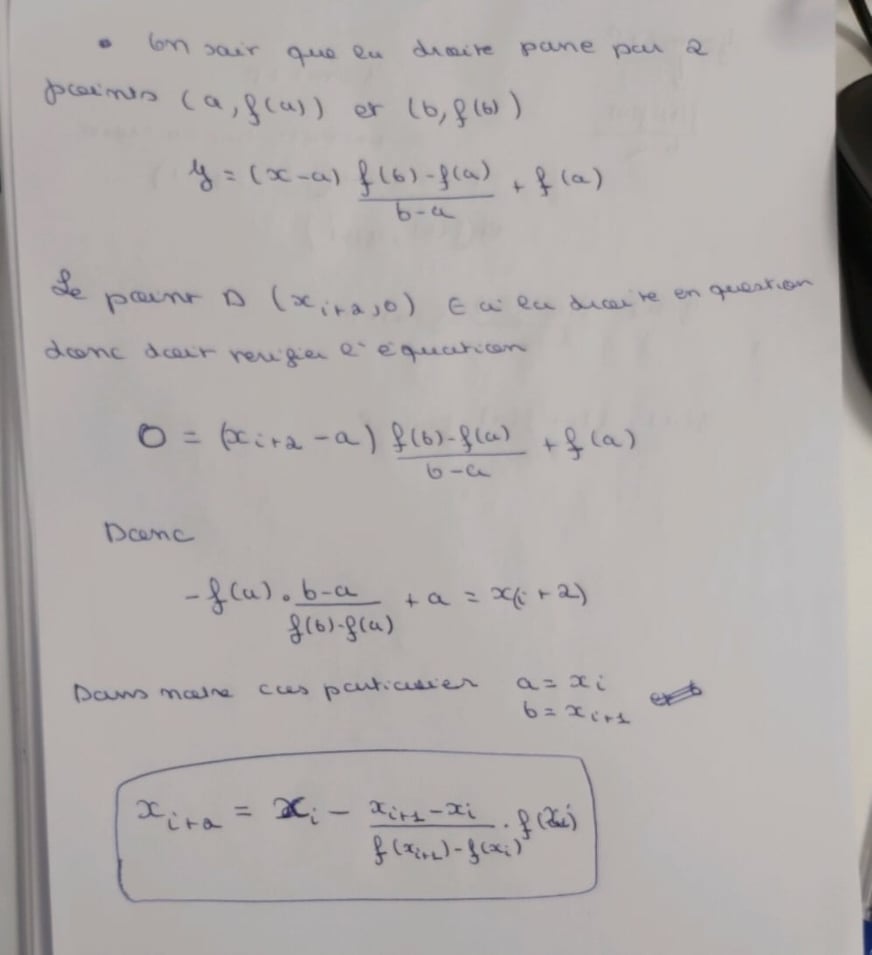 • On sait que la droite passe par 2
points (a, f(a)) et (b, f(b))
y = (x-a) \frac{f(b)-f(a)}{b-a} + f(a)
Le point D (x_{i+2}, 0) ∈ à la droite en question
donc doit verifier l'équation
0 = (x_{i+2} - a) \frac{f(b)-f(a)}{b-a} + f(a)
Donc
-f(a) . \frac{b-a}{f(b)-f(a)} + a = x(i+2)
Dans notre cas particulier a = x_i
b = x_{i+1}
x_{i+2} = x_i - \frac{x_{i+1} - x_i}{f(x_{i+1}) - f(x_i)} . f(x_i)